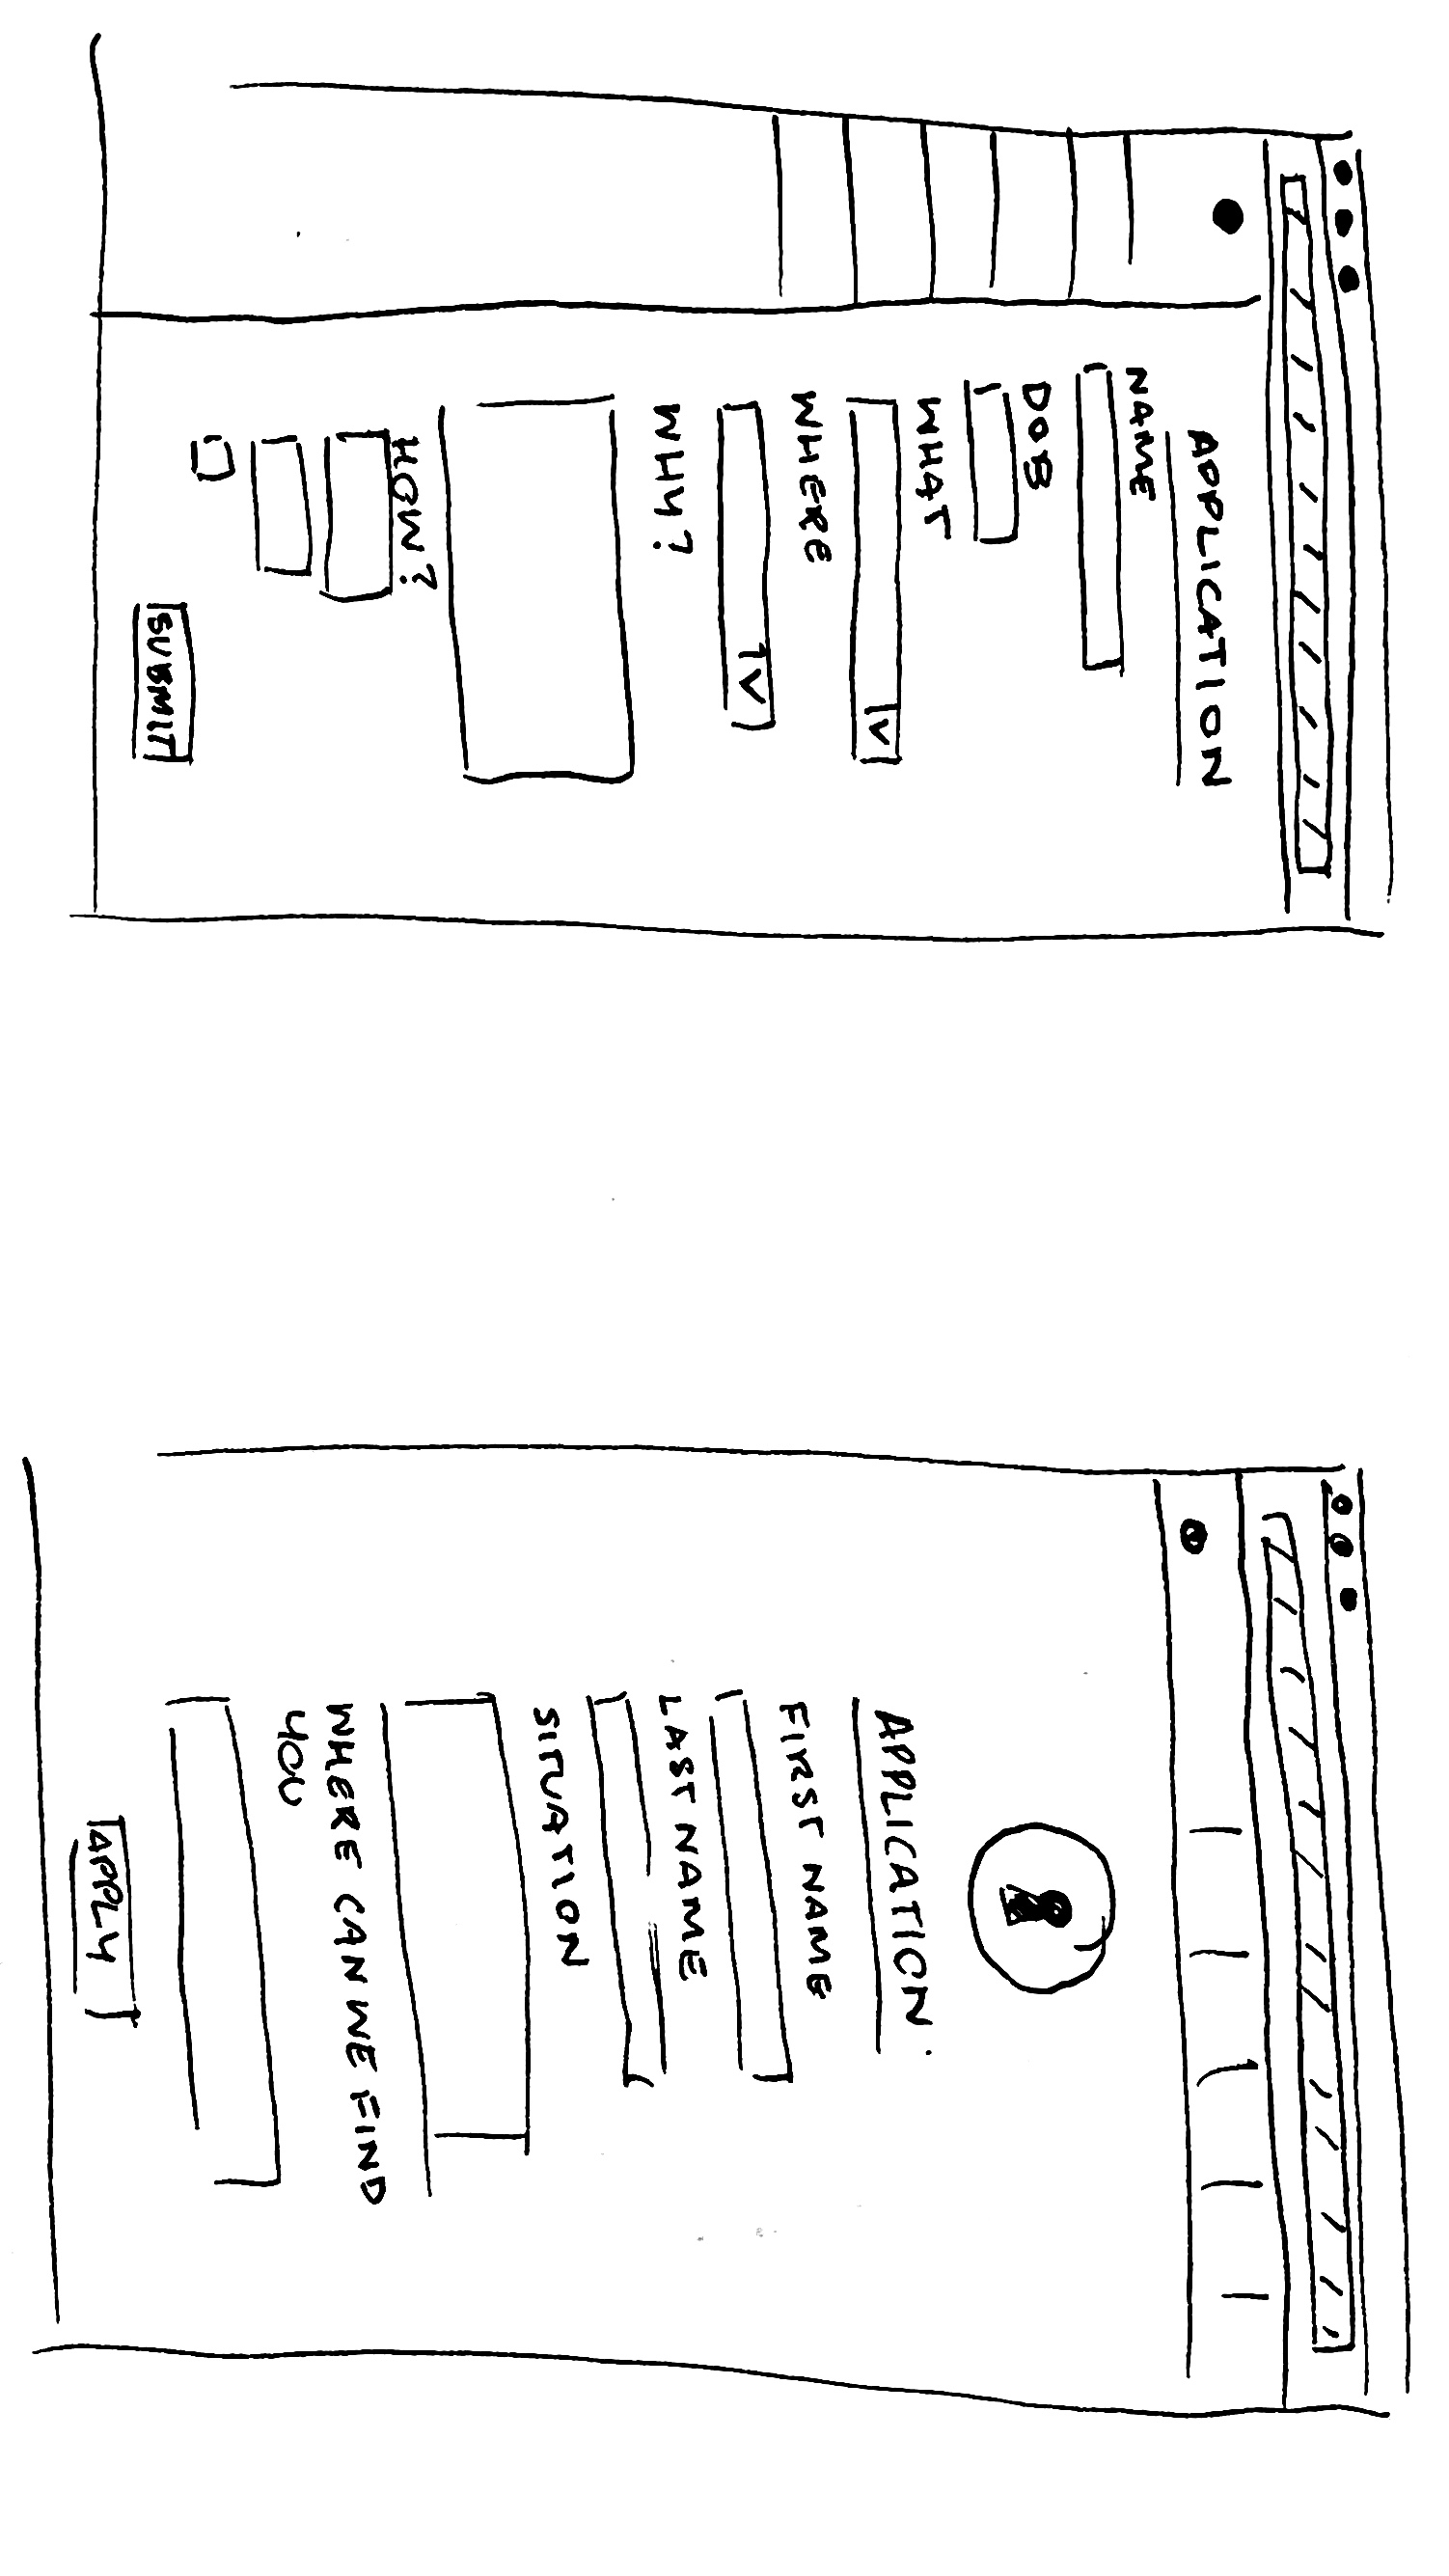 APPLICATION
NAME
DOB
WHAT
WHERE
WHY?
HOW?
SUBMIT
APPLICATION
FIRST NAME
LAST NAME
SITUATION
WHERE CAN WE FIND
YOU
APPLY